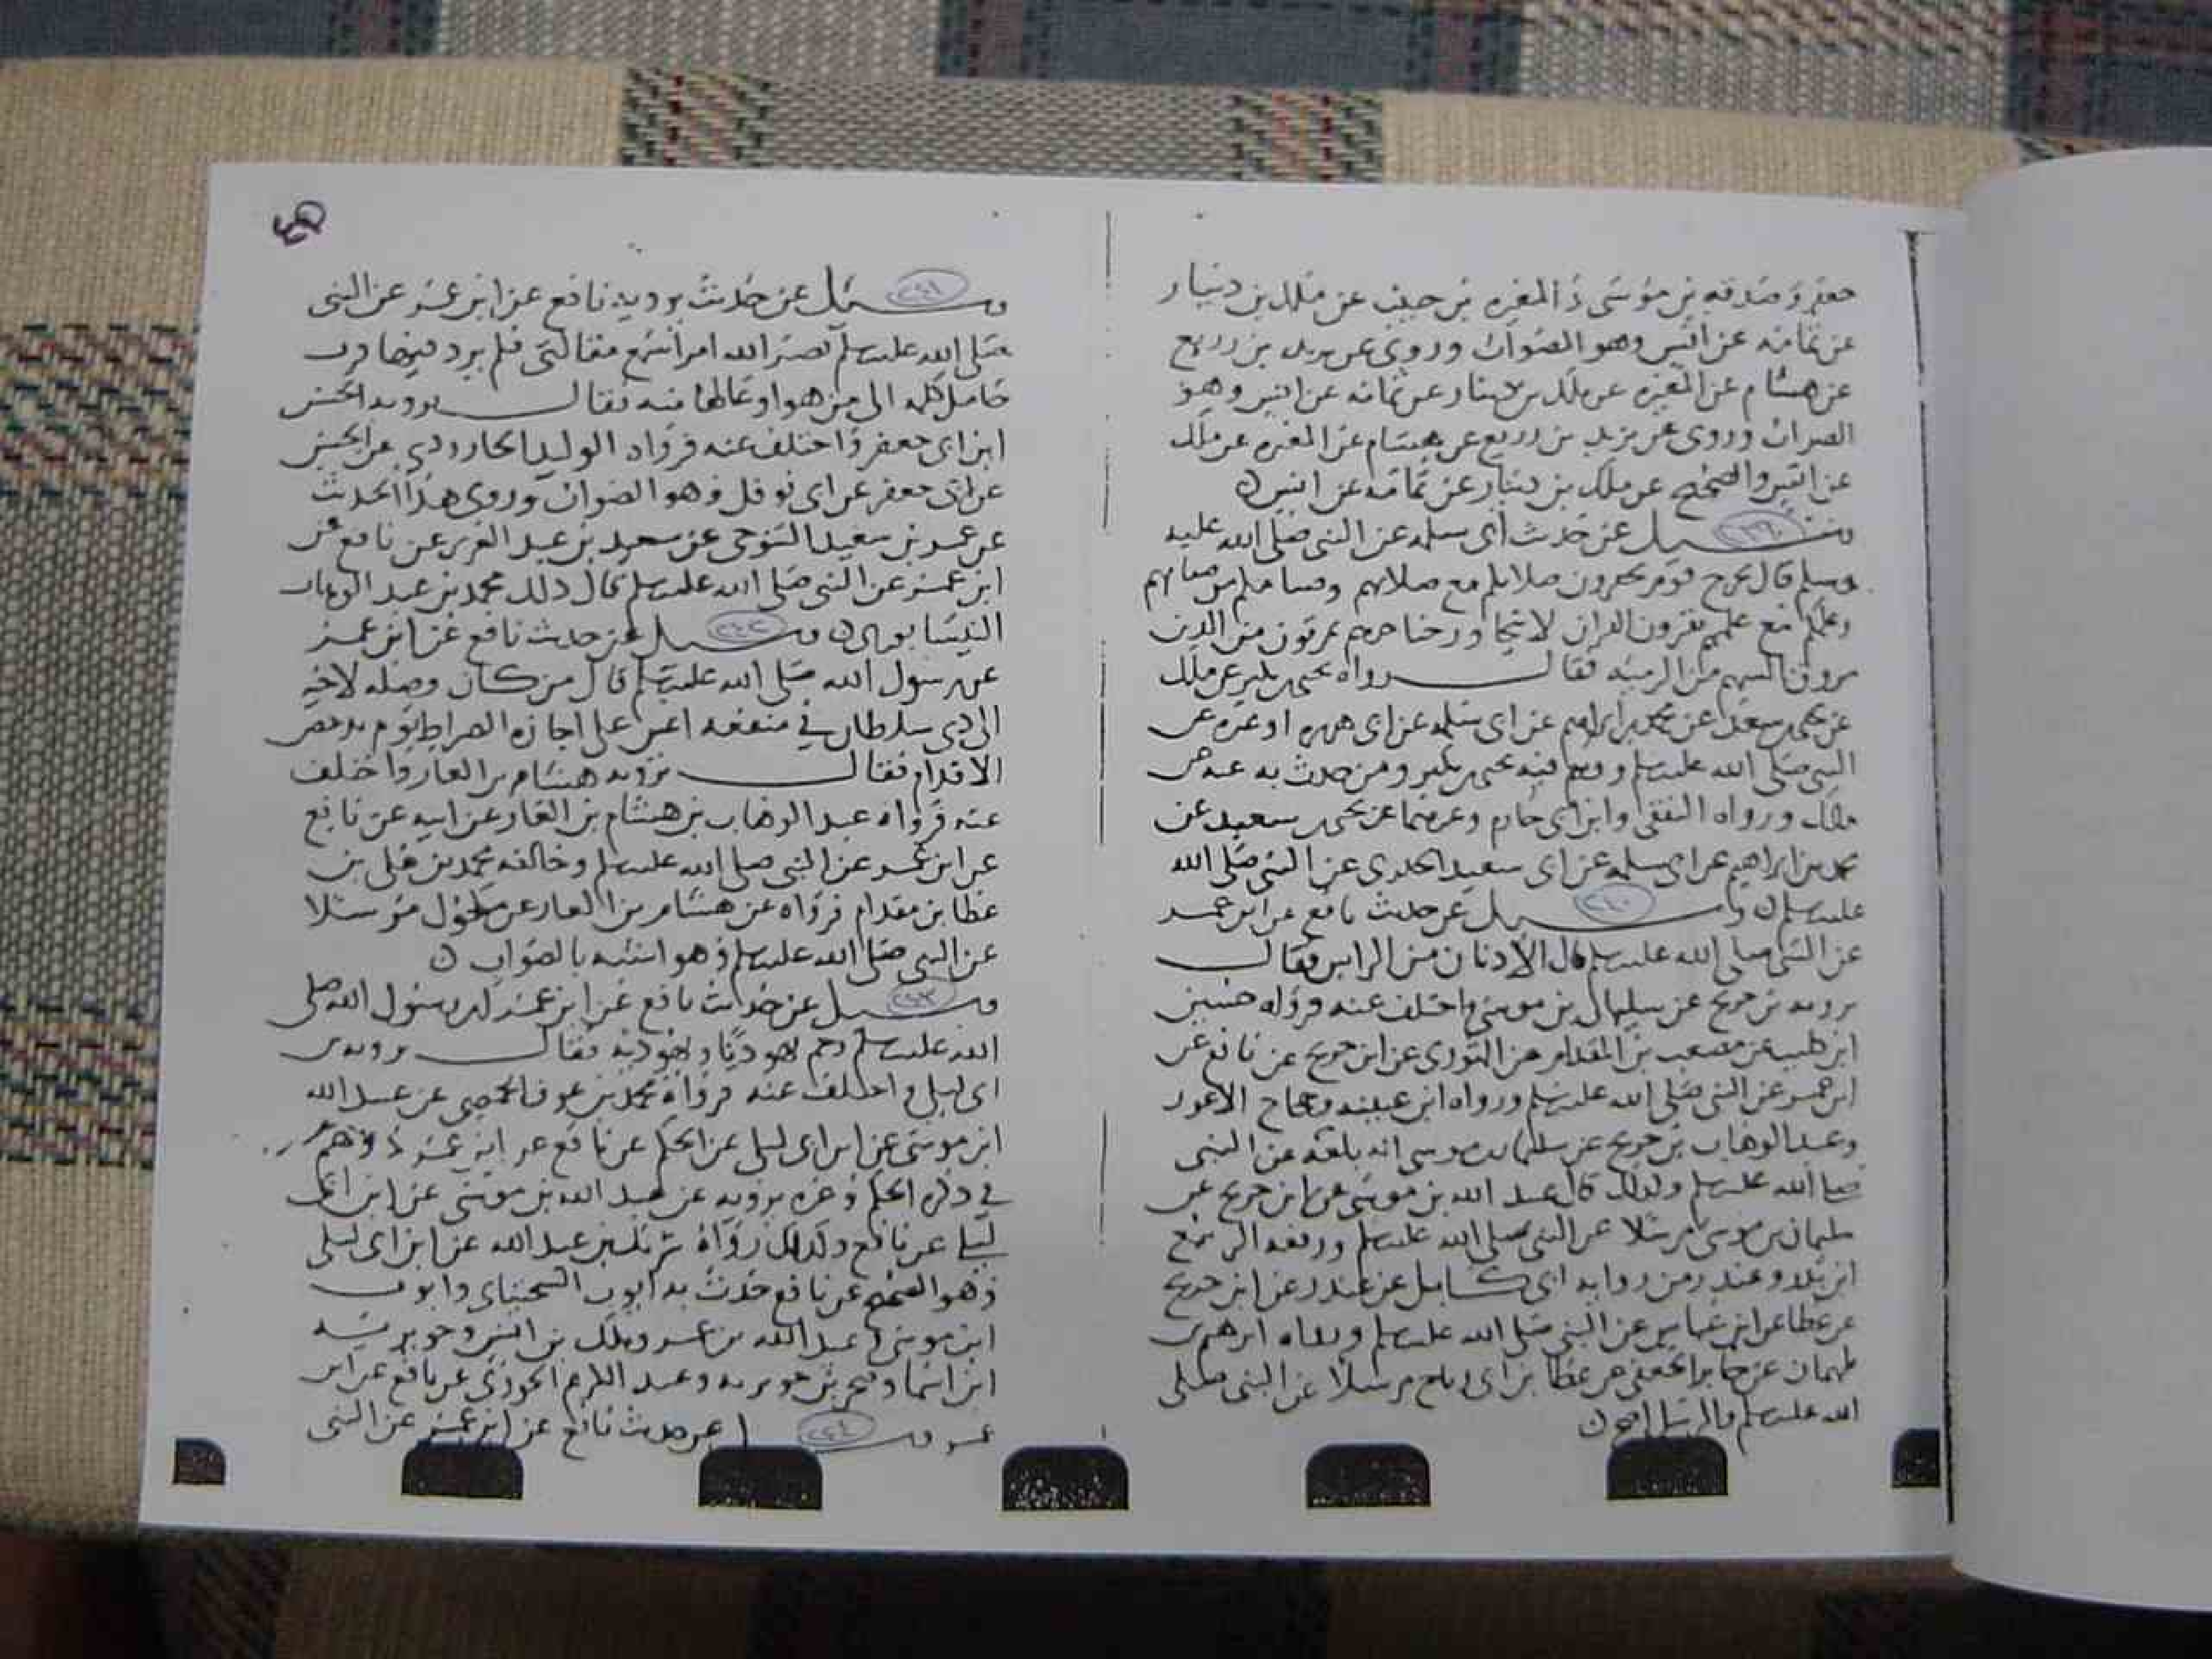 جعفر وصدقه بن موسى والمغيره بن حبيب عن ملك بن دينار
عن ثمامه عن انس وهو الصواب وروى عن يزيد بن زريع
عن هشام عن المغيره عن ملك بن دينار عن ثمامه عن انس وهو
الصواب وروى عن يزيد بن زريع عن هشام عن المغيره عن ملك
عن انس والصحيح عن ملك بن دينار عن ثمامه عن انس ن
وسئل ٢٣٩ عن حديث ابى سلمه عن النبى صلى الله عليه
وسلم قال يخرج قوم تحقرون صلاتكم مع صلاتهم وصيامكم مع صيامهم
وعملكم مع عملهم يقرون القران لا يجاوز حناجرهم يمرقون من الدين
مروق السهم من الرميه فقال رواه يحيى بن بكير عن ملك
عن يحيى بن سعيد عن محمد بن ابراهيم عن ابى سلمه عن ابى هريره او غيره عن
النبى صلى الله عليه وسلم ووهم فيه يحيى بن بكير ومن حدث به عنه عن
ملك ورواه الثقفى وابن ابى حازم وغيرهما عن يحيى بن سعيد عن
محمد بن ابراهيم عن ابى سلمه عن ابى سعيد الخدرى عن النبى صلى الله
عليه وسلم ن وسئل ٢٤٠ عن حديث نافع عن ابن عمر
عن النبى صلى الله عليه وسلم قال الاذنان من الراس فقال
يرويه بن جريج عن سليمان بن موسى واختلف عنه فرواه حنين
ابن طبيب عن مصعب بن المقدام عن الثورى عن ابن جريج عن نافع عن
ابن عمر عن النبى صلى الله عليه وسلم ورواه ابن عيينه وحجاج الاعور
وعبد الوهاب بن جريج عن سليمان بن موسى انه بلغه عن النبى
صلى الله عليه وسلم وكذلك قال عبد الله بن موسى عن ابن جريج عن
سليمان بن موسى مرسلا عن النبى صلى الله عليه وسلم ورفعه الربيع
ابن بدر وغندر من روايه ابى كامل عن غندر عن ابن جريج
عن عطا عن ابن عباس عن النبى صلى الله عليه وسلم ورواه ابرهيم بن
طهمان عن جابر الجعفى عن عطا بن ابى رباح مرسلا عن النبى صلى
الله عليه وسلم والمرسل اصح ن
وسئل ٢٤١ عن حديث يرويه نافع عن ابن عمر عن النبى
صلى الله عليه وسلم نضر الله امرا سمع مقالتى فلم يزد فيها فرب
حامل كلمه الى من هو اوعا لها منه فقال يرويه الحسن
ابن ابى جعفر واختلف عنه فرواه الوليد الجارودى عن الحسن
عن ابى جعفر عن ابى نوفل وهو الصواب وروى هذا الحديث
عن عمر بن سعيد التنوخى عن سعيد بن عبد العزيز عن نافع عن
ابن عمر عن النبى صلى الله عليه وسلم قال ذلك محمد بن عبد الوهاب
النيسابورى ن وسئل ٢٤٢ عن حديث نافع عن ابن عمر
عن رسول الله صلى الله عليه وسلم قال من كان وصله لاخيه
الى ذى سلطان في منفعه اعين على اجازه الصراط يوم يدحض
الاقدام فقال يرويه هشام بن الغاز واختلف
عنه فرواه عبد الوهاب بن هشام بن الغاز عن ابيه عن نافع
عن ابن عمر عن النبى صلى الله عليه وسلم وخالفه محمد بن على بن
عطا بن مقدام فرواه عن هشام بن الغاز عن مكحول مرسلا
عن النبى صلى الله عليه وسلم وهو اشبه بالصواب ن
وسئل ٢٤٣ عن حديث نافع عن ابن عمر ان رسول الله صلى
الله عليه وسلم رجم يهوديا ويهوديه فقال يرويه بن
ابى ليلى واختلف عنه فرواه محمد بن عوف الحمصى عن عبيد الله
ابن موسى عن ابن ابى ليلى عن الحكم عن نافع عن ابن عمر ووهم
في ذكره الحكم وغيره يرويه عن عبيد الله بن موسى عن ابن ابى
ليلى عن نافع وكذلك رواه شريك بن عبد الله عن ابن ابى ليلى
وهو الصحيح عن نافع حدث به ايوب السختيانى وايوب
ابن موسى وعبد الله بن عمر وملك بن انس وجويريه
ابن اسما وصخر بن جويريه وعبد الكريم الجزرى عن نافع عن ابن
عمر وسئل ٢٤٤ عن حديث نافع عن ابن عمر عن النبى